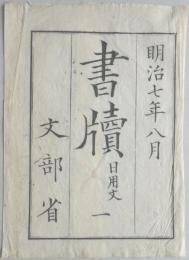 明治七年八月
書牘日用文 一
文部省